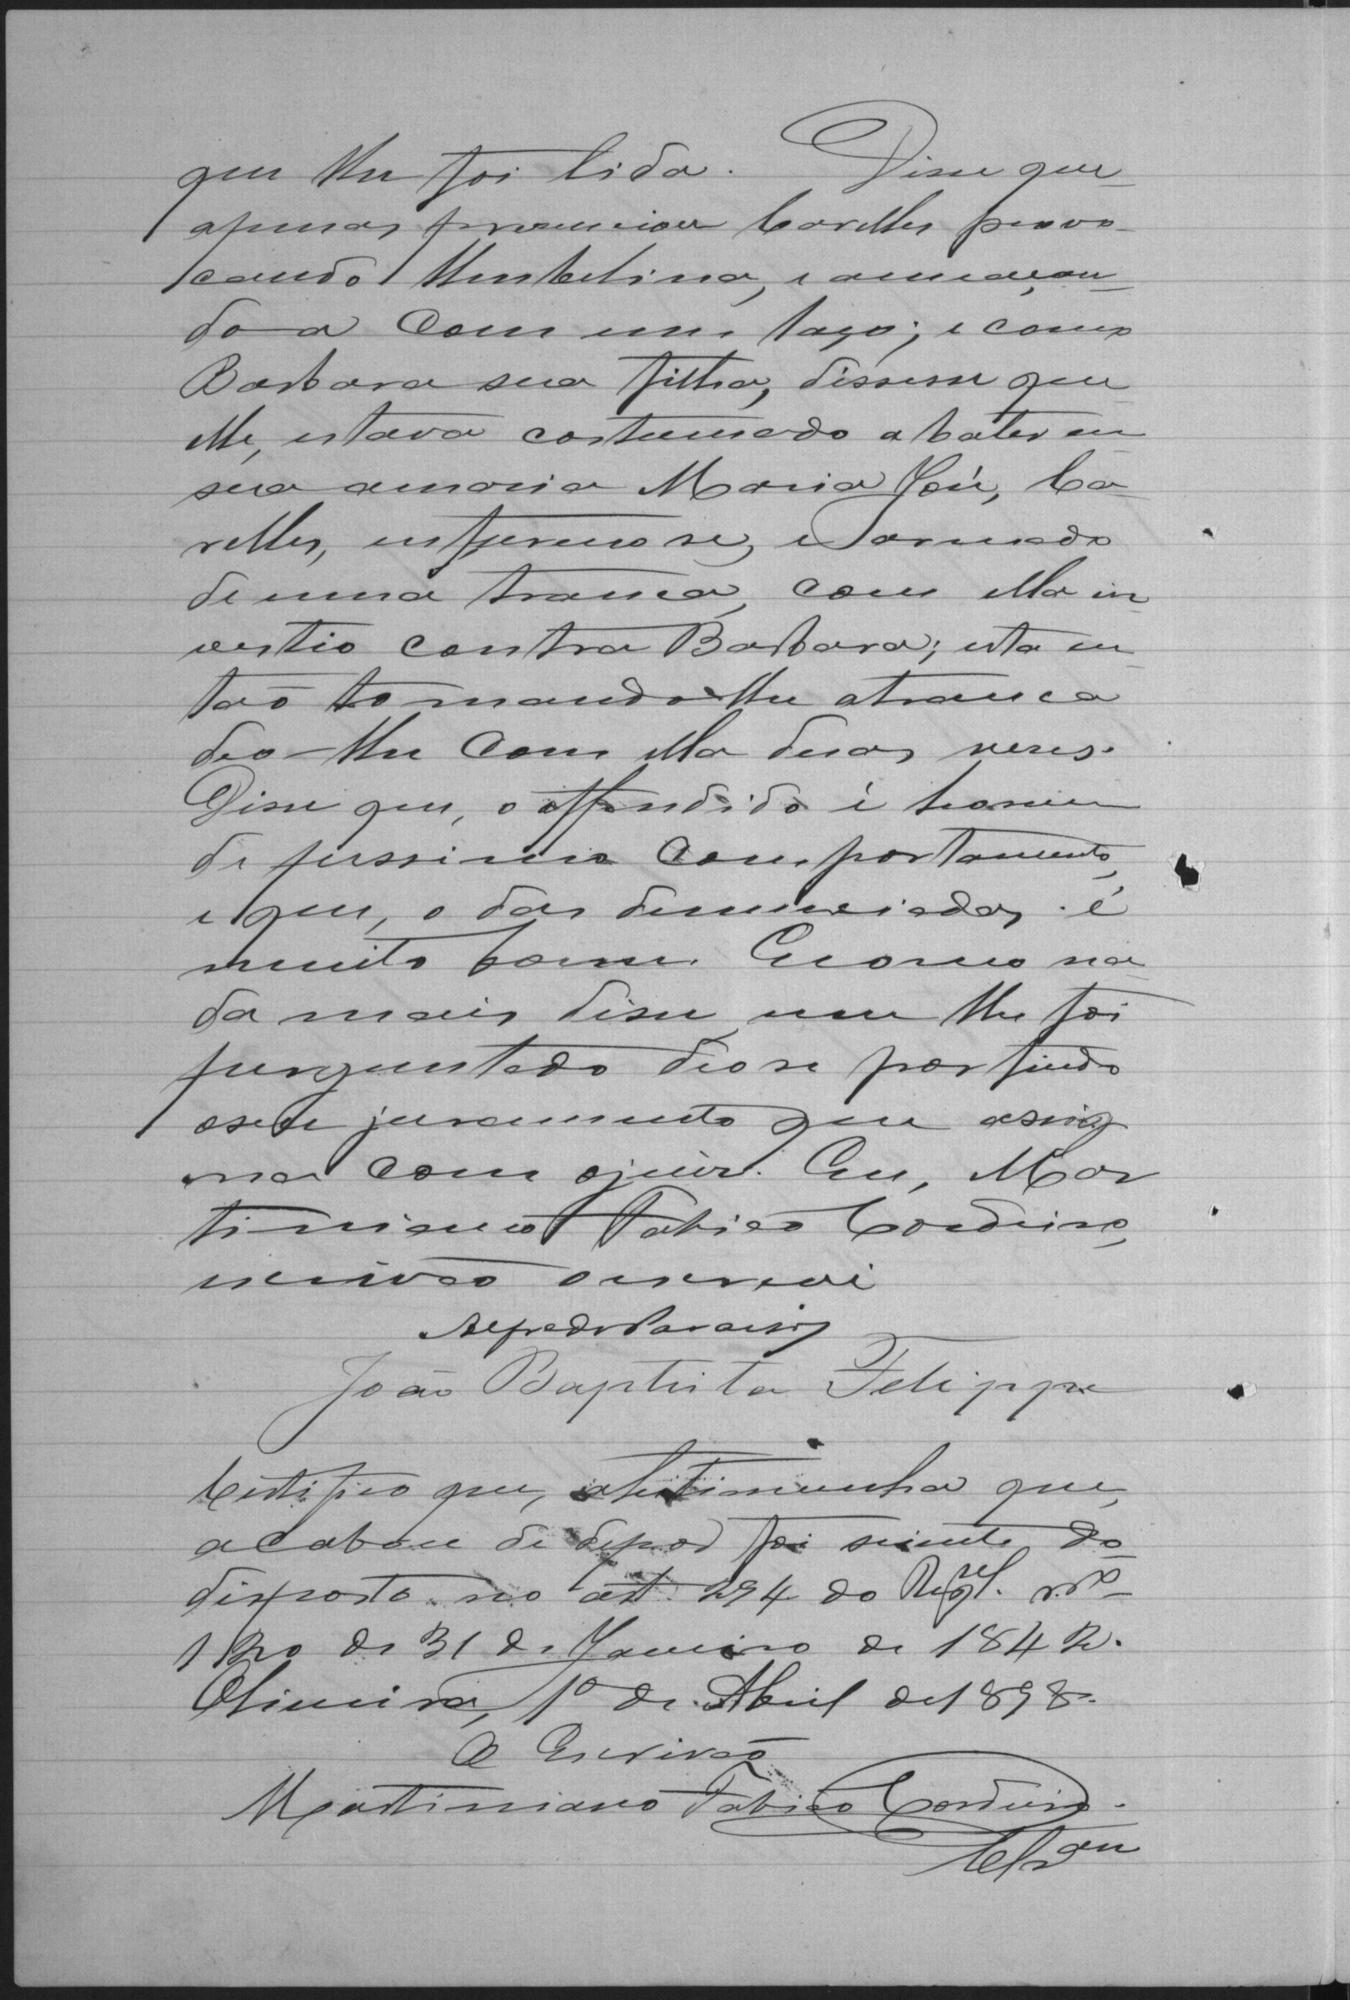 que lhe foi lida. Disse que
apenas presenciou Carelles provo-
cando Umbelina, e ameaçan-
do a com um laço; e como
Barbara sua filha, dissesse que
elle, estava costumado a bater em
sua amasia Maria José, Ca-
relles, enfureceo se, e armado
de uma tranca, com ella in-
vestio contra Barbara; esta en-
tão tomando lhe a tranca
deo-lhe com ella duas veses.
Disse que, o offendido é homem
de pessimo comportamento,
e que, o das denunciadas é
muito bom. E como na-
da mais disse, nem lhe foi
perguntado deose por findo
o seu juramento que assig
na com o juiz. Eu, Mar
timiano Tobias Cordeiro,
escrivão o escrevi
Alfredo Paraiso
João Baptista Felippe
Certifico que, a testimunha que,
acabou de depor foi sciente do
disposto no art. 294 do Regul. nº
120 de 31 de Janeiro de 1842.
Oliveira, 1º de Abril de 1898.
O Escrivão
Martimiano Tobias Cordeiro.